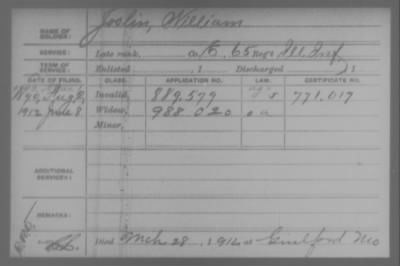 NAME OF SOLDIER: Joslin, William
SERVICE: Late rank, Co. E, 65 Reg't Ill. Inf.
TERM OF SERVICE: Enlisted , 1 Discharged , 1
DATE OF FILING. CLASS. APPLICATION NO. LAW. CERTIFICATE NO.
1890, Aug. Invalid, 889,579 771,017
1912 June 8 Widow, 988 020
Minor,
ADDITIONAL SERVICES:
REMARKS:
Died Mch 28, 1912 at Guilford Mo